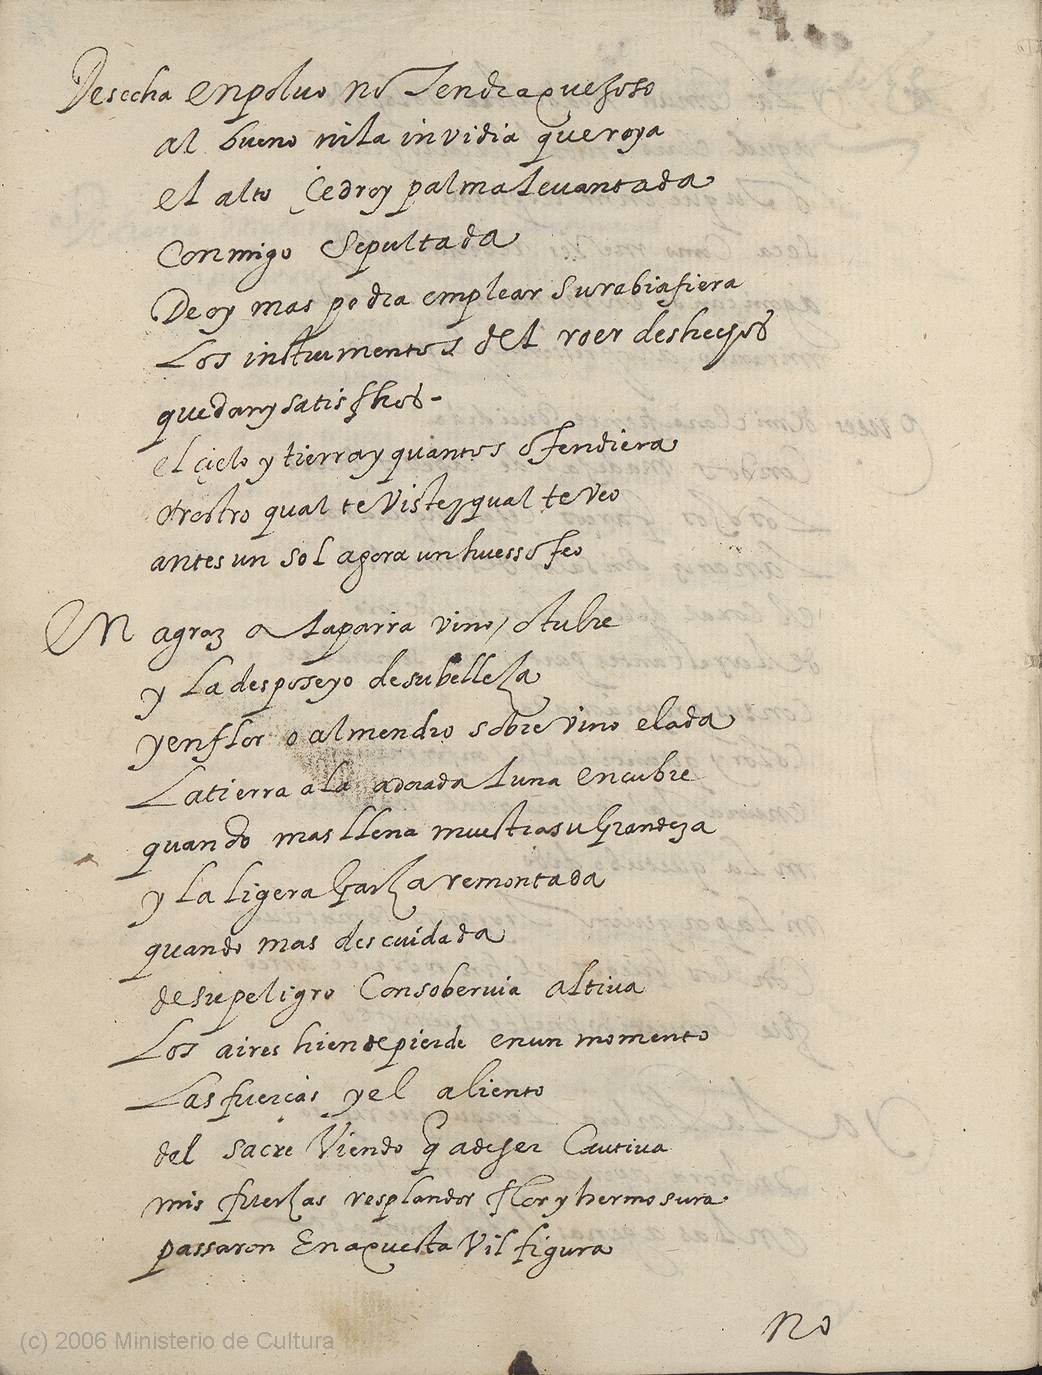 Desecha enpoluo no tendra que
al bueno nila invidia queroya
el alto çedroy palma levantada
Conmigo sepultada
De oy mas podra emplear surabiafiera
Los instrumentos del roer deshechos
quedany satisfhos-
el çielo y tierray quantos ofendiera
otrostro qual te viste y qual te veo
antes un sol agora un huesso feo
En agraz a laparra vino otubre
y La desposeyo desubelleza
yenflor o almendro sobrevino elada
Latierra ala adorada luna encubre
quando mas llena muestrasu grandeza
y la ligera Garza remontada
quando mas descuidada
desupeligro Consobervia altiva
Los aires hiende pierde enun momento
Lasfuerças yel aliento
del sacre viendo q a de ser Cautiva
mis fuerzas resplandor flor y hermosura
passaron En aquesta vil figura
No
(c) 2006 Ministerio de Cultura